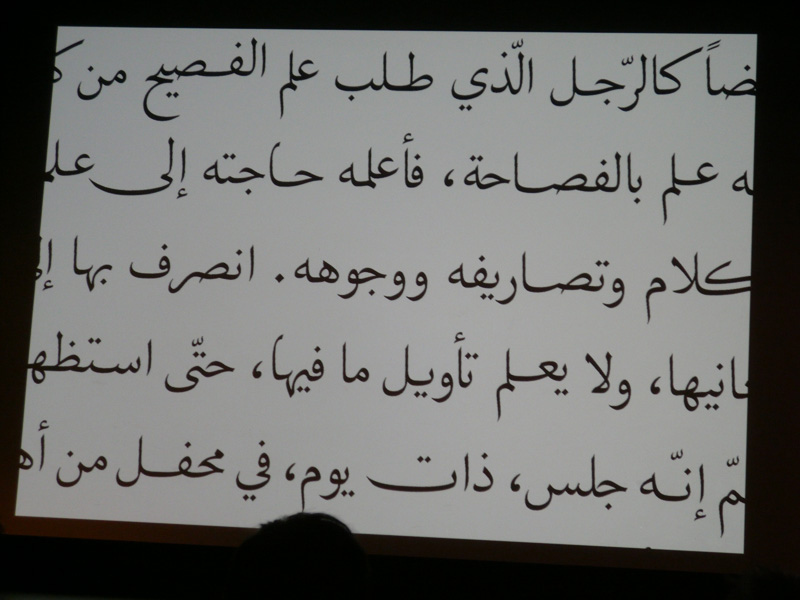 كالرّجل الّذي طلب علم الفصيح من
علم بالفصاحة، فأعلمه حاجته إلى
وتصاريفه ووجوهه. انصرف بها
ولا يعلم تأويل ما فيها، حتّى
إنّه جلس، ذات يوم، في محفل من